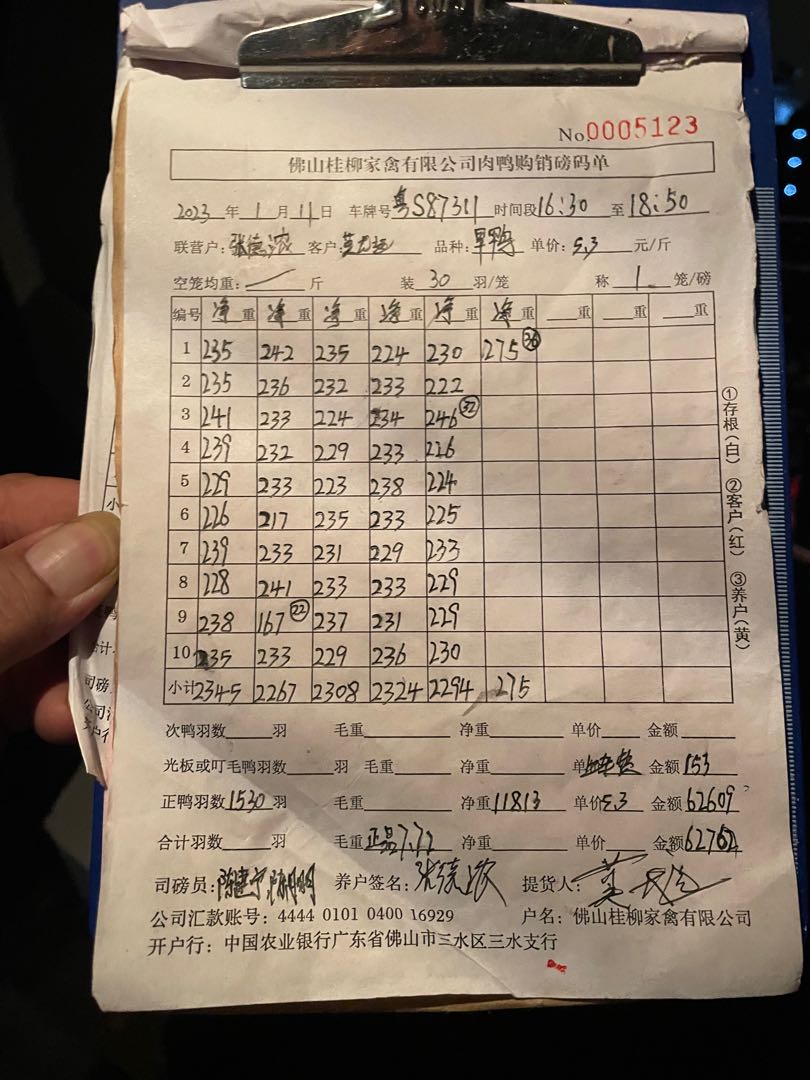 No.0005123
佛山桂柳家禽有限公司肉鸭购销磅码单
2023年1月11日 车牌号粤S87311 时间段16:30至18:50
联营户:张德浓 客户: 品种:旱鸭 单价:5.3元/斤
空笼均重:／斤 装30羽/笼 称1笼/磅
编号 净重 净重 净重 净重 净重 净重 重 重 重
1 235 242 235 224 230 275 ㊱
2 235 236 232 233 222
3 241 233 224 234 246 ㉜
4 239 232 229 233 226
5 229 233 223 238 224
6 226 217 235 233 225
7 239 233 231 229 233
8 228 241 233 233 229
9 238 167 ㉒ 237 231 229
10 235 233 229 236 230
小计 2345 2267 2308 2324 2294 275
①存根(白) ②客户(红) ③养户(黄)
次鸭羽数 羽 毛重 净重 单价 金额
光板或叮毛鸭羽数 羽 毛重 净重 单 金额153
正鸭羽数1530羽 毛重 净重11813 单价5.3 金额62609
合计羽数 羽 毛重正品7.72 净重 单价 金额62762
司磅员: 养户签名:张德浓 提货人:
公司汇款账号:4444 0101 0400 16929 户名:佛山桂柳家禽有限公司
开户行:中国农业银行广东省佛山市三水区三水支行